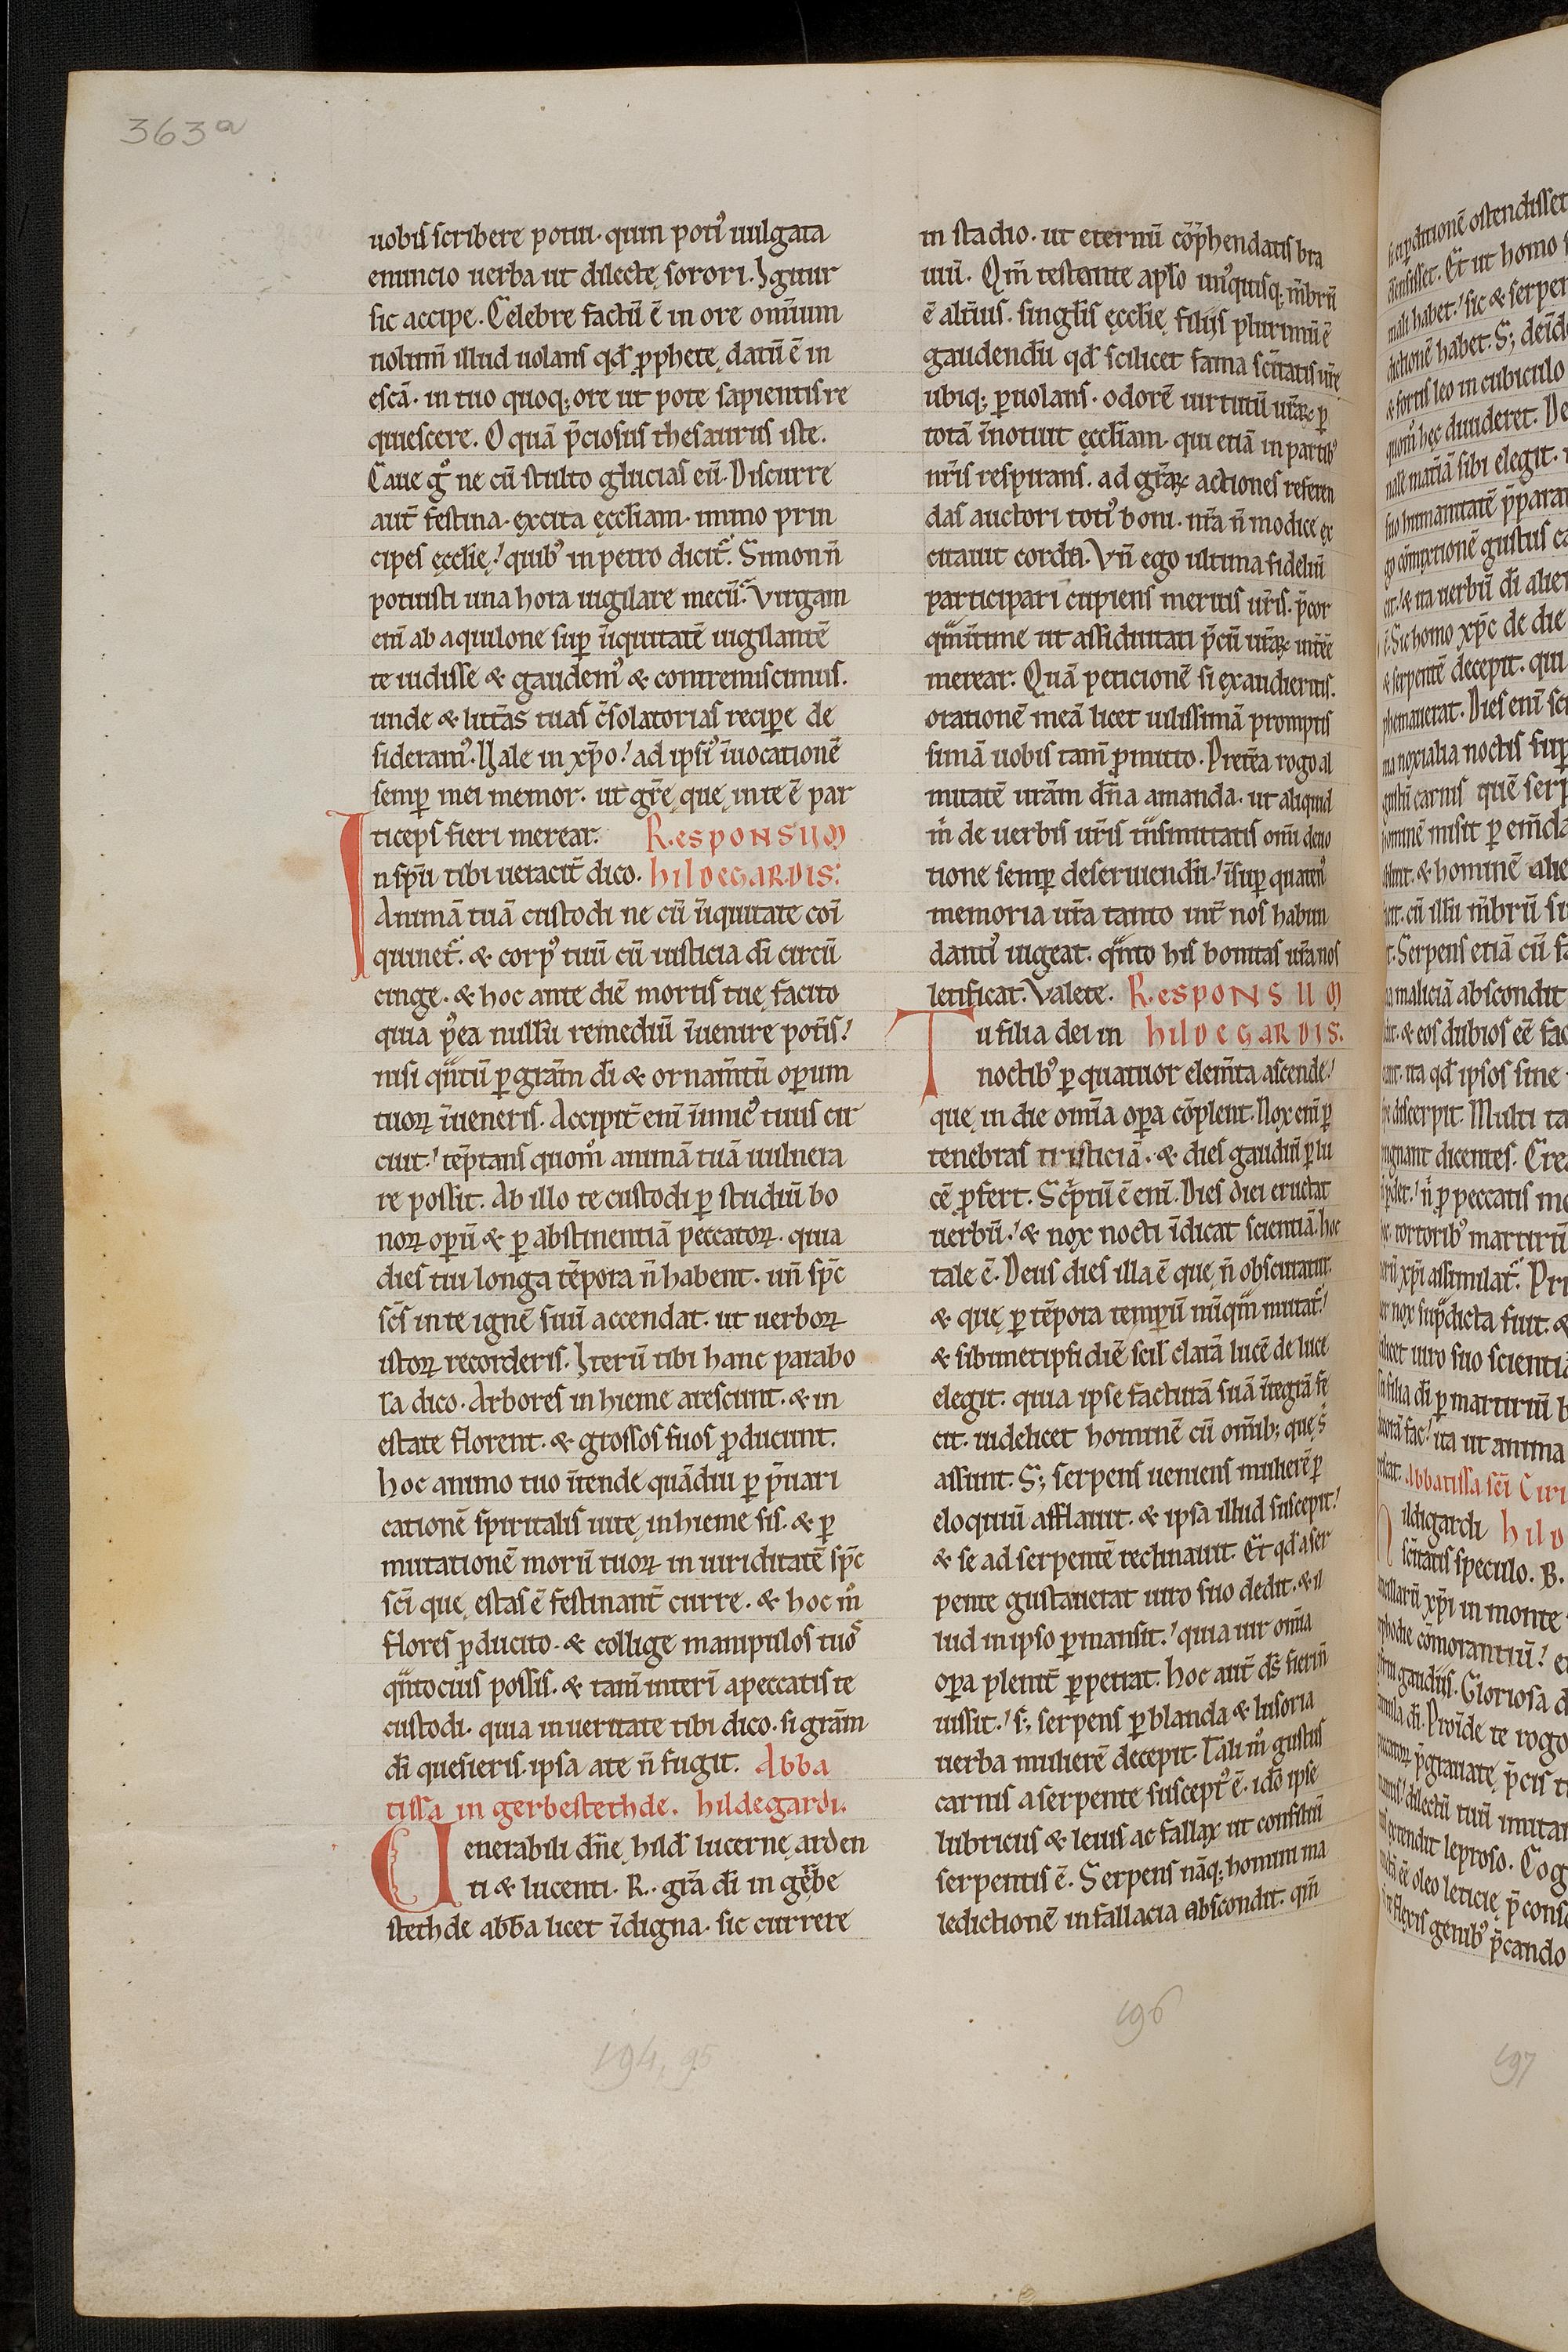 363a
uobis scribere potui· quin poti᷒ uulgata
enuncio uerba ut dilectę sorori. Igitur
sic accipe. Celebre factū ē in ore omium
nolum̄ illud uolans qd̄ ꝓphetę datū ē in
escā· in tuo quoq; ore ut pote sapientis re
quiescere. O quā p̄ciosus thesaurus iste.
Caue g̊ ne cū stulto glucias eū. Discurre
aut̄ festina· excita ęccłiam· immo prin
cipes ęccłię! quib᷒ in petro dicit̄. Simon n̄
potuisti una hora uigilare mecū. Virgam
eni᷒ ab aquilone suꝑ īiquitatē uigilantē
te uidisse & gaudem᷒ & contremiscimus.
unde & litt̄as tuas c̄solatorias reciꝑe de
sideram᷒. Vale in xp̄o! ad ipsi᷒ īuocationē
semꝑ mei memor· ut gr̄ę que in te ē par
ticeps fieri merear. Responsum
In sp̄u tibi ueracit̄ dico. hildegardis:
Animā tuā custodi ne cū īiquitate coī
quinet̄. & corp᷒ tuū cū iusticia dī circū
cinge· & hoc ante diē mortis tuę facito
quia p᷒ea nullū remediū īuenire potis!
nisi qn̄tū ꝑ grām dī & ornam̄tū oꝑum
tuoꝝ īueneris. Accipit̄ eni᷒ īimic᷒ tuus cir
cuit! tēptans quom᷒ animā tuā uulnera
re possit. Ab illo te custodi ꝑ studiū bo
noꝝ oꝑū & ꝑ abstinentiā peccatoꝝ. quia
dies tui longa tēpora n̄ habent. un̄ sp̄c
scs̄ in te ignē suū accendat· ut uerboꝝ
istoꝝ recorderis. Iterū tibi hanc parabo
la dico. Arbores in hieme arescunt· & in
estate florent· & grossos suos ꝓducunt.
hoc animo tuo ītende quādiu ꝑ p̄uari
cationē spiritalis uitę in hieme sis· & ꝑ
mutationē morū tuoꝝ in uiriditatē sp̄c
scī que estas ē festinant̄ curre. & hoc m̊
flores ꝓducito· & collige manipulos tuos
qn̄tocius possis· & tam̄ interī a peccatis te
custodi· quia in ueritate tibi dico· si grām
dī quesieris· ipsa a te n̄ fugit. Abba
tissa in gerbestethde. hildegardi.
Uenerabili dn̄ę hild̄ lucernę arden
ti & lucenti. R. grā dī in gerbe
stethde abb̄a licet īdigna· sic currere
in stadio· ut eternū cōp̄hendatis bra
uiū. Qm̄ testante aplo un᷒quisq; m̄brū
ē alt̄ius· singlis ęccłię filijs plurimū ē
gaudendū qd̄ scilicet fama scītatis ur̄ę
ubiq; ꝑuolans· odorē uirtutū ur̄aꝝ ꝑ
totā īnotuit ęccłiam· qui etiā in partib᷒
nr̄is respirans· ad gr̄aꝝ actiones referen
das auctori toti᷒ boni· nr̄a n̄ modice ex
citauit corda. Vn̄ ego ultima fideliū
participari cupiens meritis ur̄is· p̄cor
qm̄ītime ut assiduitati p̄cū ur̄aꝝ int̄ēē
merear. Quā peticionē si exaudieritis·
orationē meā licet uilissimā promptis
simā uobis tam̄ ꝓmitto. Pretēa rogo al
mitatē urām dn̄a amanda· ut aliquid
m̄ de uerbis ur̄is īt̄ismittatis om̄i deuo
tione semꝑ deseruiendū! īsuꝑ quatin᷒
memoria ur̄a tanto int̄ nos habun
danti᷒ uigeat· qn̄to his bonitas ur̄a nos
letificat. Valete. Responsum
Tu filia dei in hildegardis.
noctib᷒ ꝑ quatuor elem̄ta ascende!
que in die omīa oꝑa cōplent. Nox eni᷒ ꝑ
tenebras tristiciā· & dies gaudiū ꝑ lu
cē ꝓfert. Scptū ē eni᷒. Dies diei eructat
uerbū! & nox nocti īdicat scientiā. hoc
tale ē. Deus dies illa ē que n̄ obscuratur·
& quę ꝑ tēpora tempū nūqm̄ mutat̄!
& sibimetipsi diē scil̄ clarā lucē de luce
elegit. quia ipse facturā suā ītegrā fe
cit· uidelicet hominē cū omīb; que s̄
assunt. S; serpens ueniens mulierē ꝑ
eloquiū afflauit· & ipsa illud suscepit!
& se ad serpentē reclinauit. Et qd̄ a ser
pente gustauerat uiro suo dedit· & il
lud in ipso ꝑmansit! quia uir omīa
oꝑa plenit̄ ꝑpetrat. hoc aut̄ ds̄ fieri n̄
iussit! s; serpens ꝑ blanda & lusoria
uerba mulierē decepit. Tali m̊ gustus
carnis a serpente suscept᷒ ē· ideo ipse
lubricus & leuis ac fallax ut consiliū
serpentis ē. Serpens nāq; homini ma
ledictionē in fallacia abscondit· qm̄
194, 95
196
197